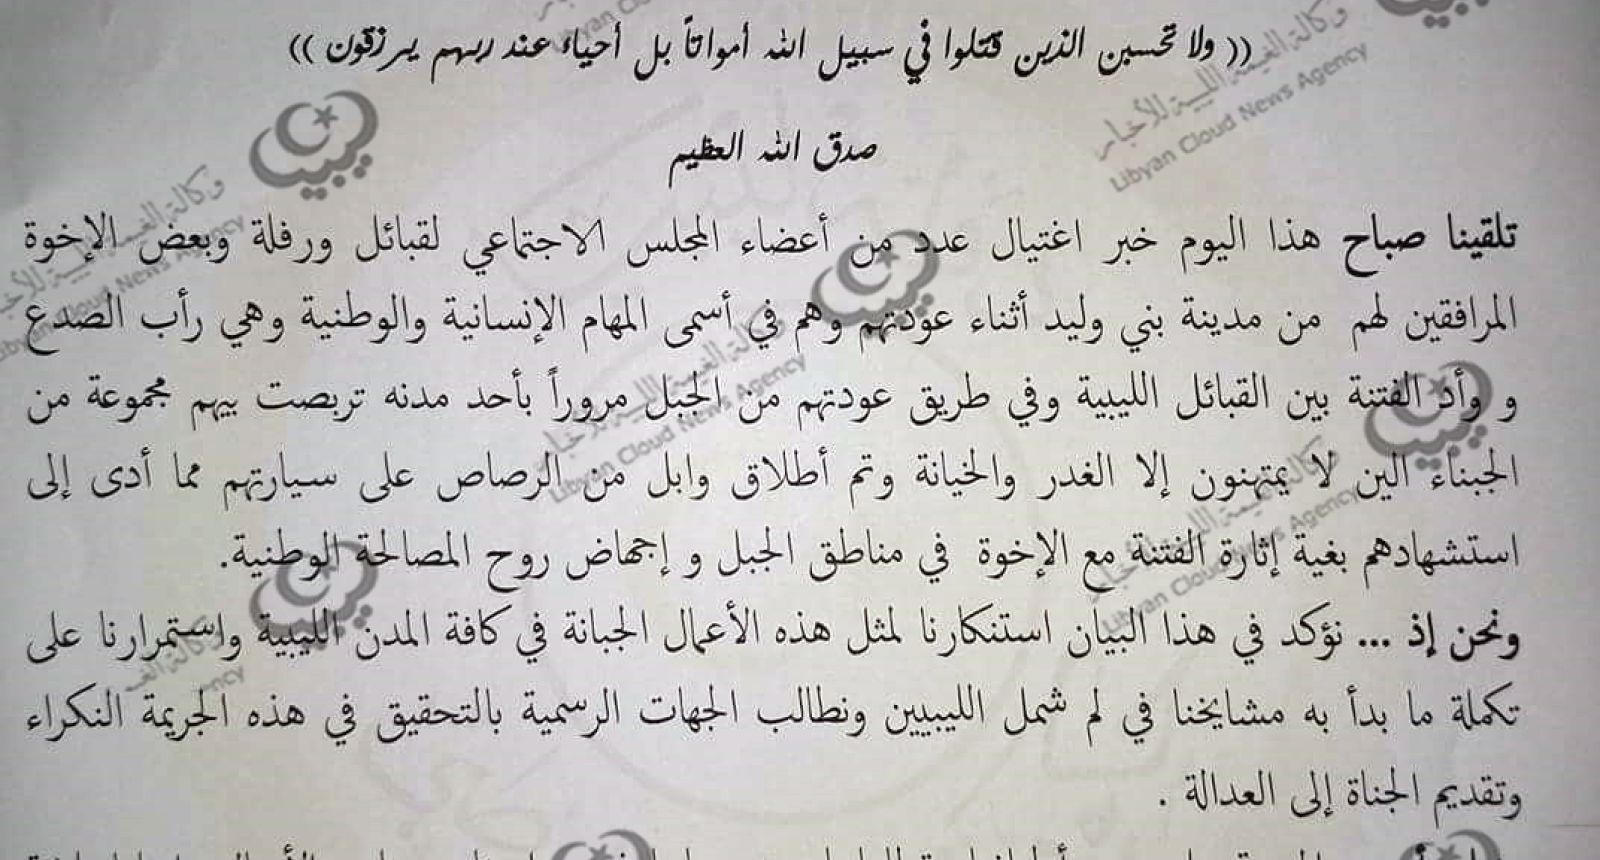 (( ولا تحسبن الذين قتلوا في سبيل الله أمواتاً بل أحياء عند ربهم يرزقون ))
صدق الله العظيم
تلقينا صباح هذا اليوم خبر اغتيال عدد من أعضاء المجلس الاجتماعي لقبائل ورفلة وبعض الإخوة
المرافقين لهم من مدينة بني وليد أثناء عودتهم وهم في أسمى المهام الإنسانية والوطنية وهي رأب الصدع
و وأد الفتنة بين القبائل الليبية وفي طريق عودتهم من الجبل مروراً بأحد مدنه تربصت بيهم مجموعة من
الجبناء الين لا يمتهنون إلا الغدر والخيانة وتم أطلاق وابل من الرصاص على سيارتهم مما أدى إلى
استشهادهم بغية إثارة الفتنة مع الإخوة في مناطق الجبل و إجهاض روح المصالحة الوطنية.
ونحن إذ ... نؤكد في هذا البيان استنكارنا لمثل هذه الأعمال الجبانة في كافة المدن الليبية واستمرارنا على
تكملة ما بدأ به مشايخنا في لم شمل الليبيين ونطالب الجهات الرسمية بالتحقيق في هذه الجريمة النكراء
وتقديم الجناة إلى العدالة .
وكالة الغيمة الليبية للأخبار
Libyan Cloud News Agency